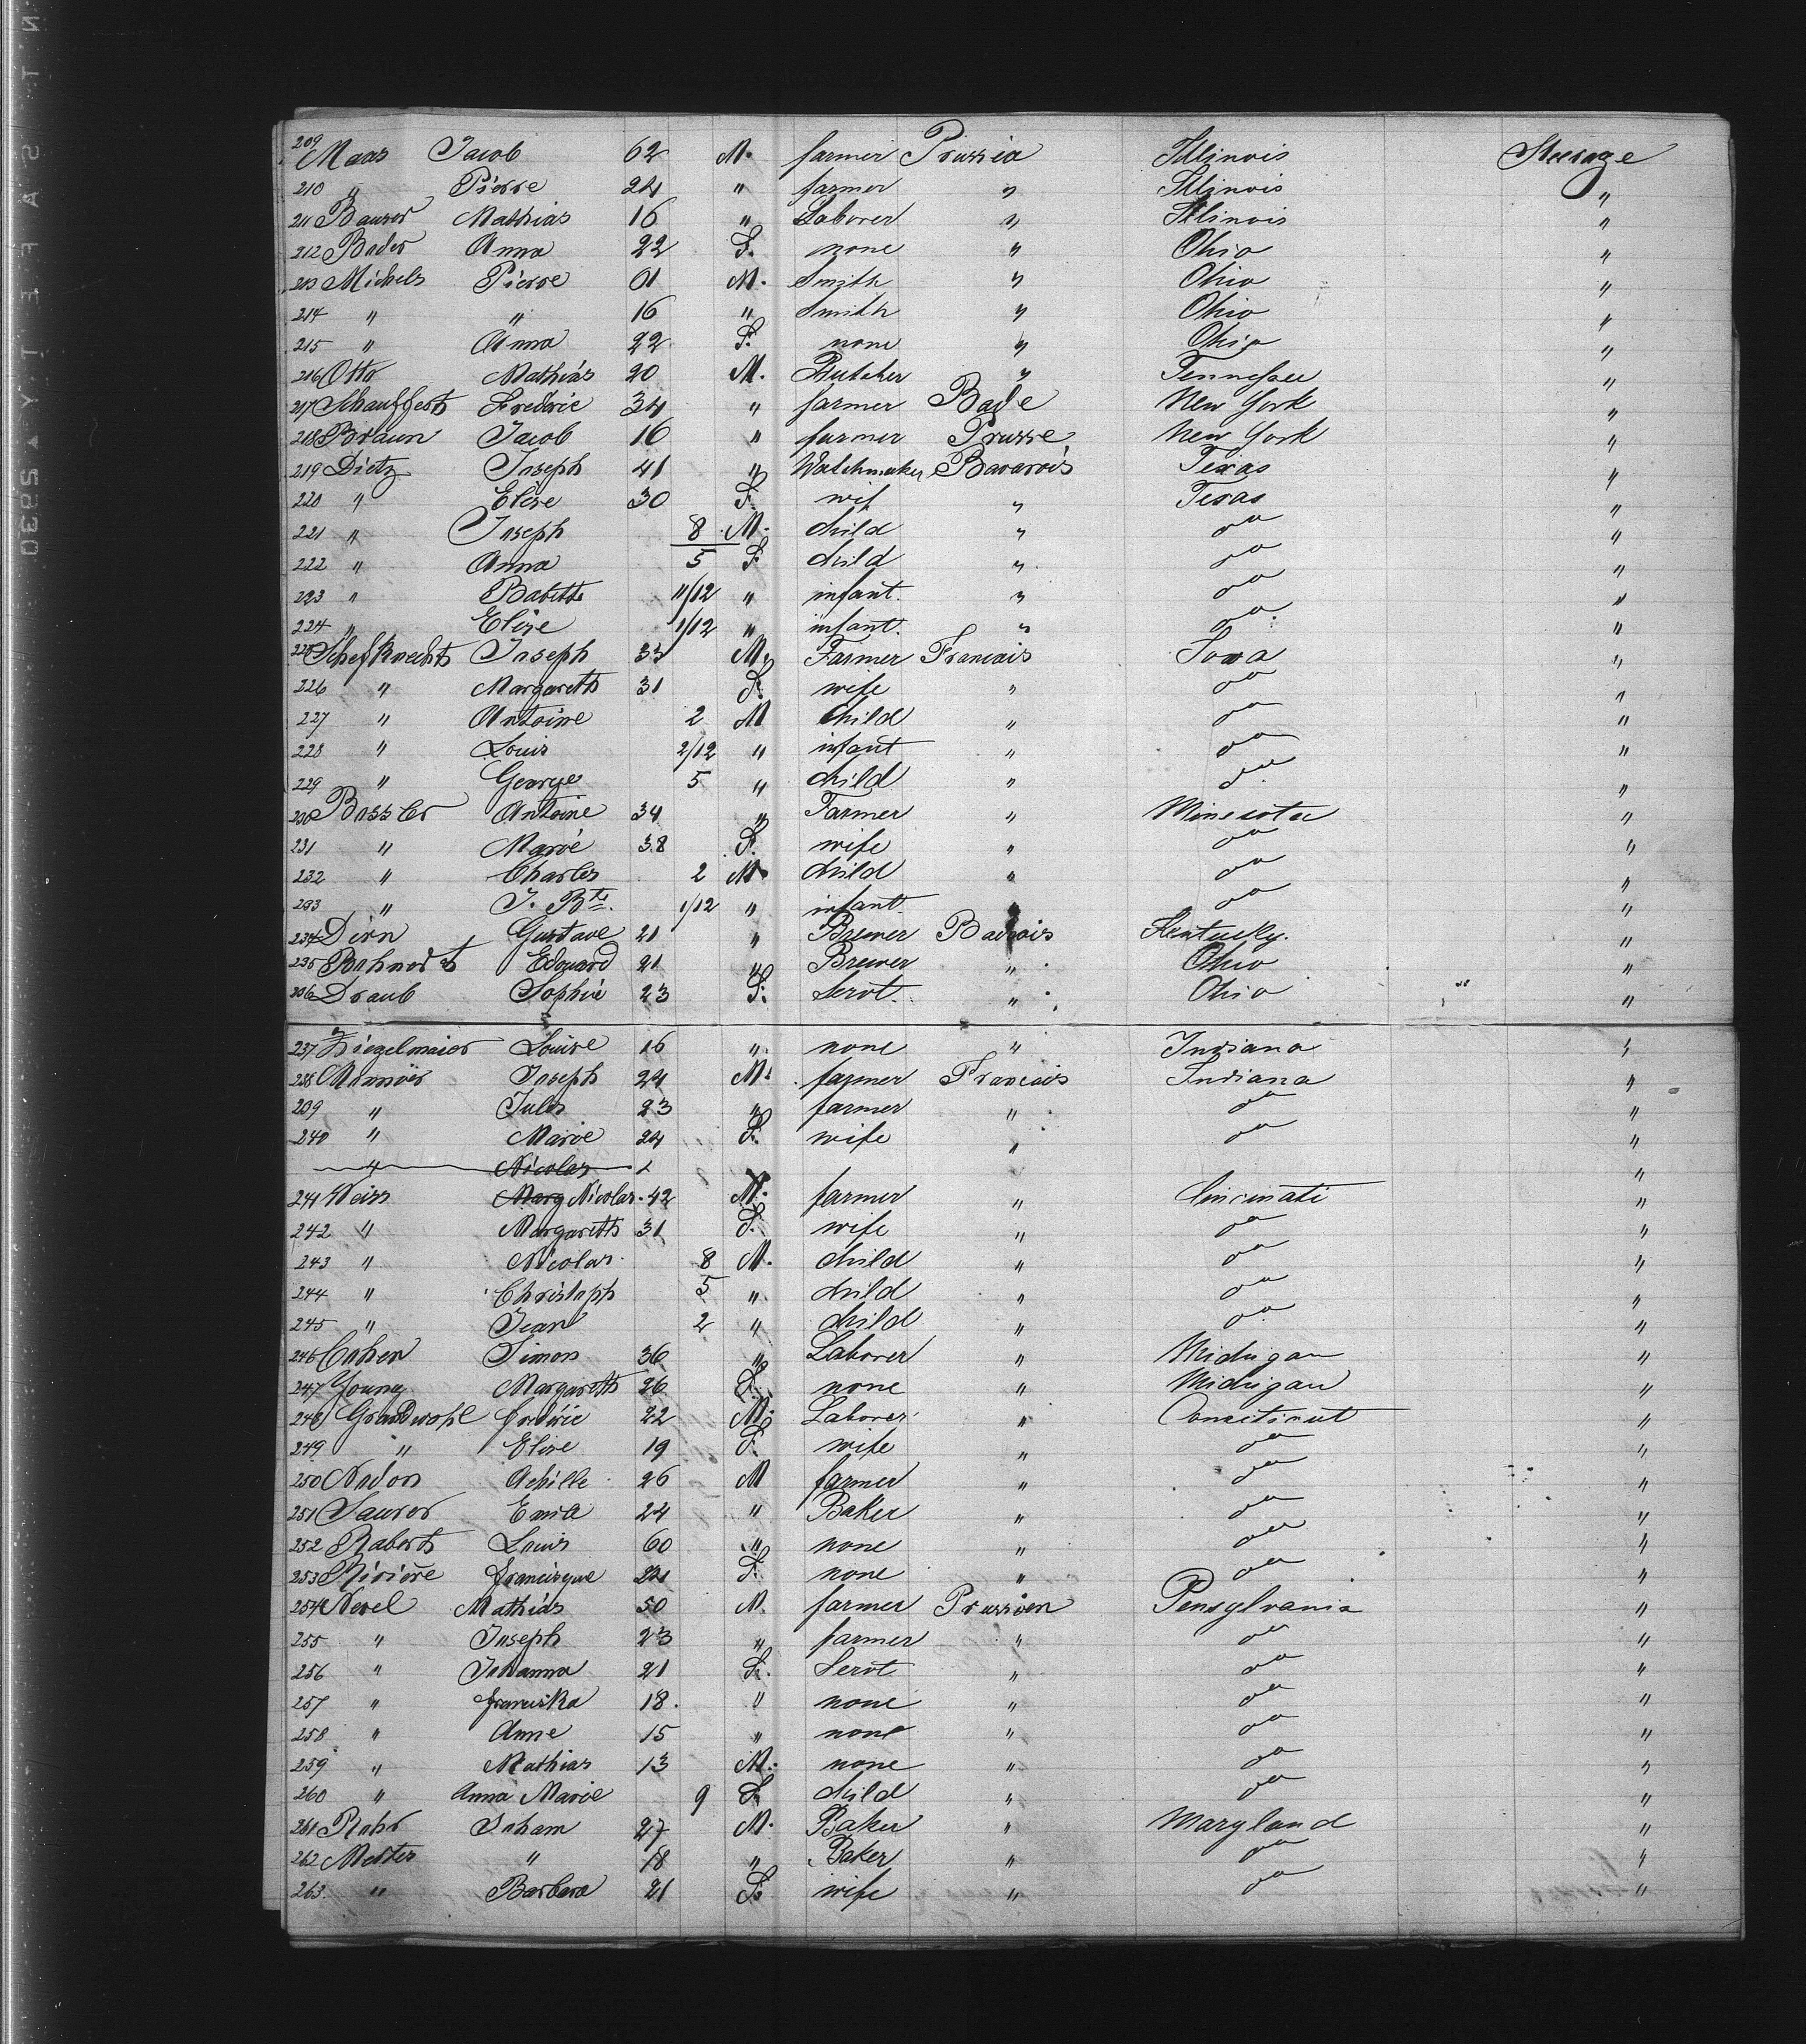 209 Maas Jacob 62 M. farmer Prussia Illinois Steerage
210 " Pierre 24 " farmer " Illinois "
211 Baurer Mathias 16 " Laborer " Illinois "
212 Bader Anna 22 F. none " Ohio "
213 Michels Pierre 01 M. Smith " Ohio "
214 " " 16 " Smith " Ohio "
215 " Anna 22 F. none " Ohio "
216 Otto Mathias 20 M. Butcher " Tennessee "
217 Schauffert Frederic 34 " farmer Bade New York "
218 Braun Jacob 16 " farmer Prusse New York "
219 Dietz Joseph 41 " Watchmaker Bavarois Texas "
220 " Elise 30 F. wif " Texas "
221 " Joseph 8 M. child " do "
222 " Anna 5 F child " do "
223 " Babette 11/12 " infant. " do "
224 " Elise 1/12 " infant. " do "
225 Schefknecht Joseph 33 M. Farmer Francais Iowa "
226 " Margareth 31 F. wife " do "
227 " Antoine 2 M child " do "
228 " Louis 2/12 " infant " do "
229 " George 5 " child " do "
230 Bassler Antoine 34 " Farmer " Minesota "
231 " Marie 38 F. wife " do "
232 " Charles 2 M. child " do "
233 " J. Bte. 1/12 " infant " do "
234 Dirn Gustave 21 " Brewer Badois Kentucky. "
235 Edouard 21 " Brewer " Ohio "
236 Draub Sophie 23 F. Servt. " Ohio "
237 Ziegelmaier Louise 16 " none " Indiana "
238 Joseph 24 M. farmer Francais Indiana "
239 " Jules 23 " farmer " do "
240 " Marie 24 F. wife " do "
" Nicolas "
241 Weiss Marg Nicolas. 42 M. farmer " Cincinati "
242 " Margareth 31 F. wife " do "
243 " Nicolas. 8 M. child " do "
244 " Christoph 5 " child " do "
245 " Jean 2 " child " do "
246 Cahen Simon 36 " Laborer " Michigan "
247 Young Margareth 26 F. none " Michigan "
248 Grandwohl frederic 22 M. Laborer " Conecticut "
249 " Elise 19 F. wife " do "
250 Nadon Achille 26 M farmer " do "
251 Saurer Emile 24 " Baker " do "
252 Robert Louis 60 " none " do "
253 Riviere francisque F. none " do "
254 Nevel Mathias 50 M. farmer Prussien Pensylvania "
255 " Joseph 23 " farmer " do "
256 " Johanna 21 F. Servt " do "
257 " franciska 18. " none " do "
258 " Anne 15 " none " do "
259 " Mathias 13 M. none " do "
260 " Anna Marie 9 F. child " do "
261 Rohr Joham 27 M. Baker " Maryland "
262 " 18 " Baker " do "
263. " Barbara 21 F. wife " do "